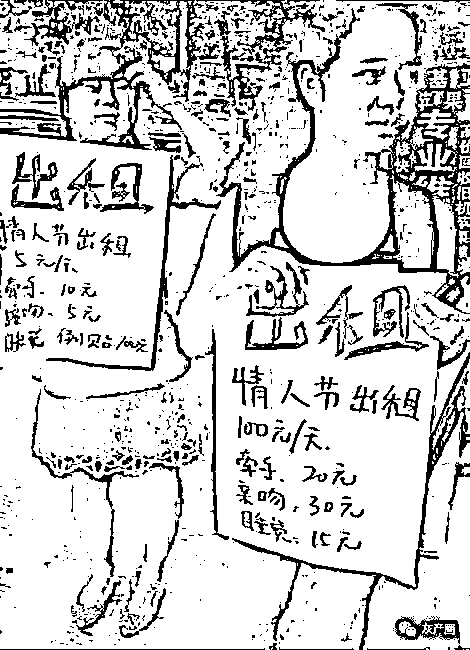 出租
情人节出租
5元/天
牵手、10元
接吻、5元
睡觉 倒贴100元
出租
情人节出租
100元/天.
牵手、20元
亲吻、30元
睡觉、15元
专业
灰产圈